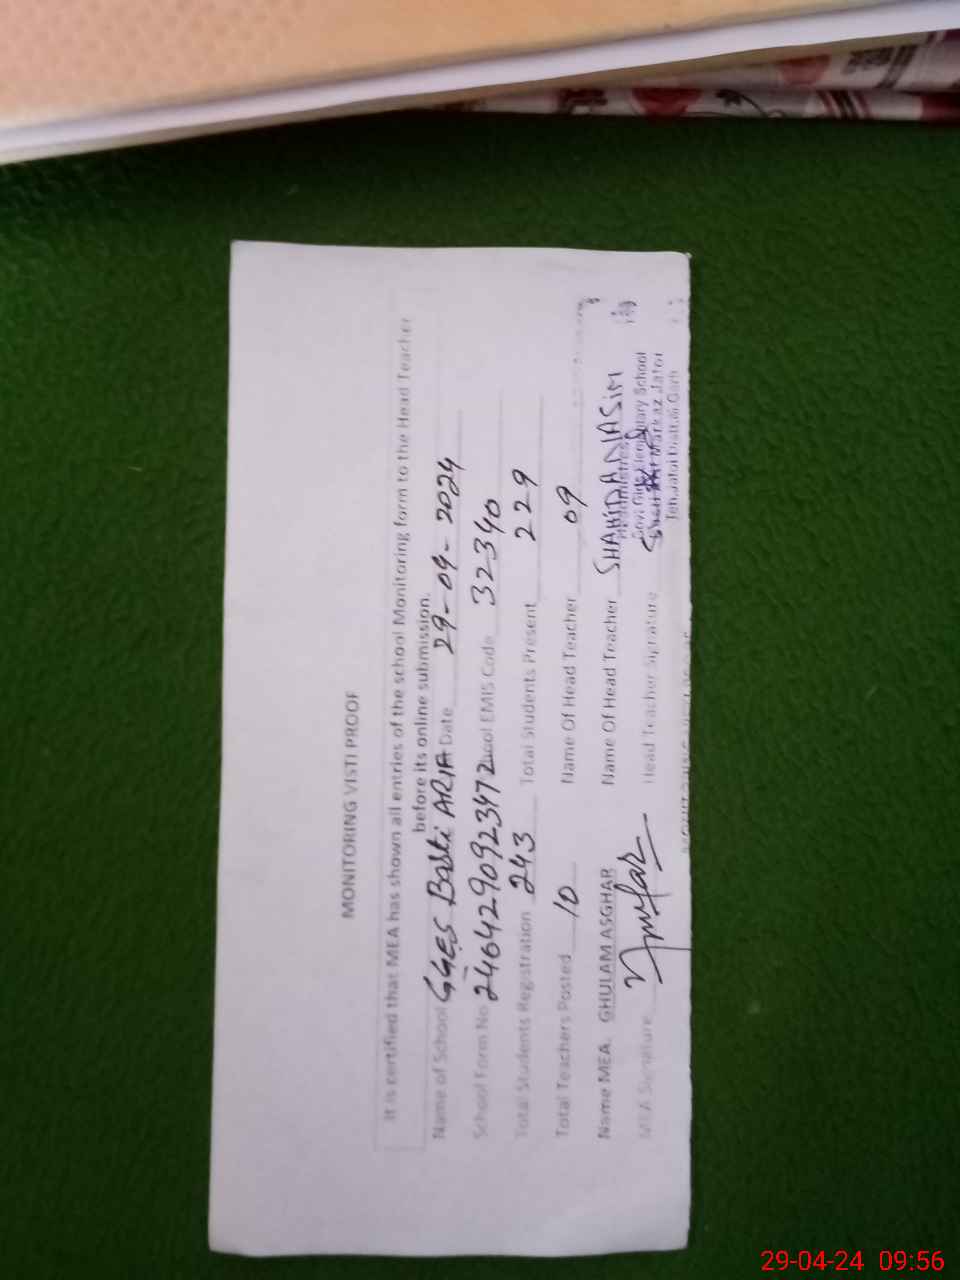 MONITORING VISTI PROOF
It is certified that MEA has shown all entries of the school Monitoring form to the Head Teacher
before its online submission.
Name of School GGES Basti ARIA Date 29-04-2024
School Form No 2464290923472 hool EMIS Code 32340
Total Students Registration 243 Total Students Present 229
Total Teachers Posted 10 Name Of Head Teacher 09
Name MEA. GHULAM ASGHAR Name Of Head Teacher SHAHIDA NASIM
Headmistress
MEA Signature Head Teacher Signature
Govt Girls Elementary School
Markaz Jatoi
Teh. Jatoi
29-04-24 09:56